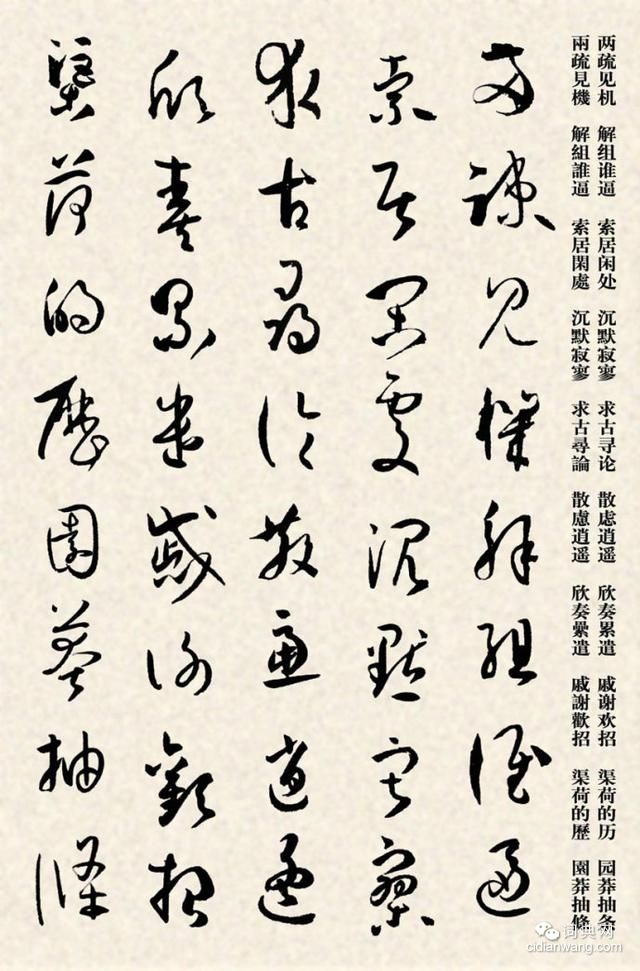 两疏见机 解组谁逼 索居闲处 沉默寂寥 求古寻论 散虑逍遥 欣奏累遣 戚谢欢招 渠荷的历 园莽抽条
兩疏見機 解組誰逼 索居閑處 沉默寂寥 求古尋論 散慮逍遥 欣奏纍遣 戚謝歡招 渠荷的歷 園莽抽條
兩疏見機解組誰逼
索居閑處沉默寂寥
求古尋論散慮逍遥
欣奏累遣慼謝歡招
渠荷的歷園莽抽條
词典网
cidianwang.com